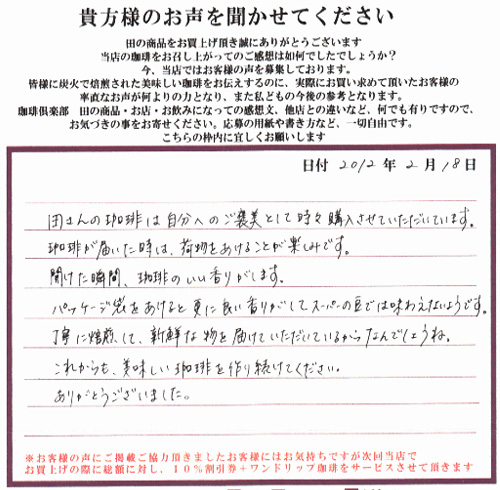 貴方様のお声を聞かせてください
田の商品をお買上げ頂き誠にありがとうございます
当店の珈琲をお召し上がってのご感想は如何でしたでしょうか?
今、当店ではお客様の声を募集しております。
皆様に炭火で焙煎された美味しい珈琲をお伝えするのに、実際にお買い求めて頂いたお客様の
率直なお声が何よりの力となり、また私どもの今後の参考となります。
珈琲倶楽部 田の商品・お店・お飲みになっての感想文、他店との違いなど、何でも有りですので、
お気づきの事をお寄せください。応募の用紙や書き方など、一切自由です。
こちらの枠内に宜しくお願いします
日付 2012 年 2 月 18 日
田さんの珈琲は自分へのご褒美として時々購入させていただいています。
珈琲が届いた時は、荷物をあけることが楽しみです。
開けた瞬間、珈琲のいい香りがします。
パッケージ袋をあけると更に良い香りがしてスーパーの豆では味わえないようです。
丁寧に焙煎して、新鮮な物を届けていただいているからなんでしょうね。
これからも、美味しい珈琲を作り続けてください。
ありがとうございました。
※お客様の声にご掲載ご協力頂きましたお客様にはお気持ちですが次回当店で
お買上げの際に総額に対し、10%割引券+ワンドリップ珈琲をサービスさせて頂きます